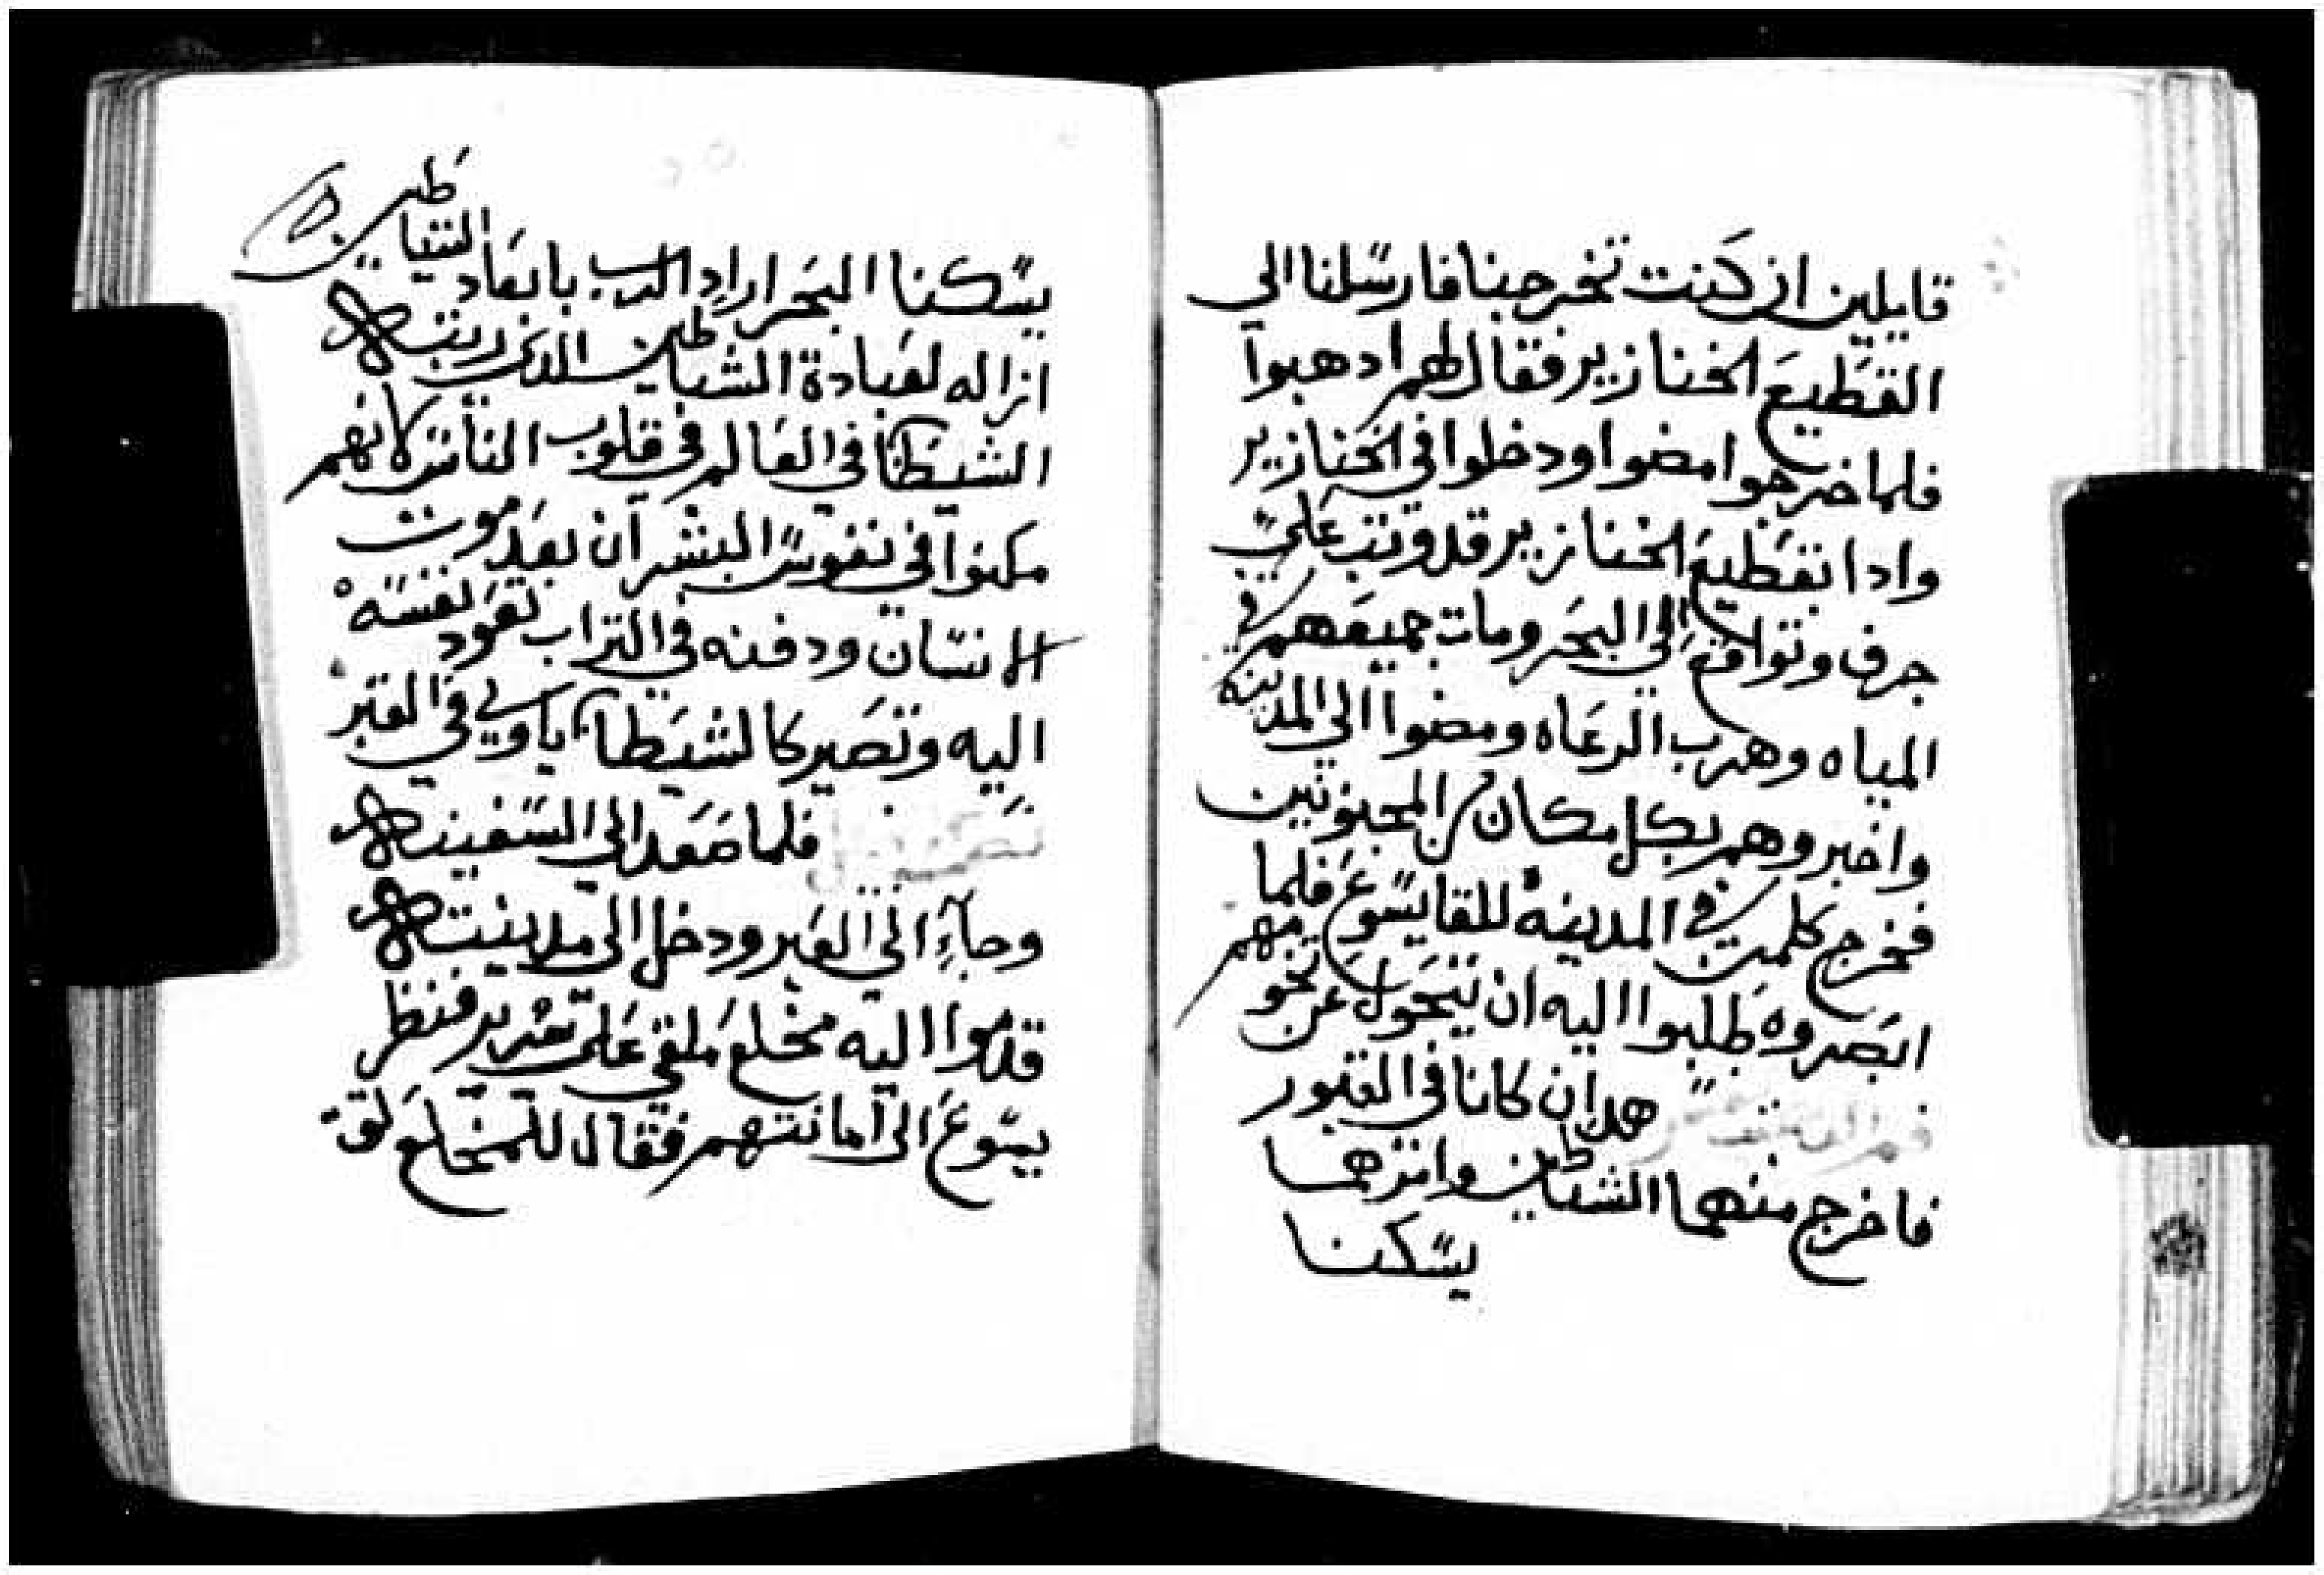 قايلين ان كنت تخرجنا فارسلنا الى
القطيع الخنازير فقال لهم ادهبوا
فلما خرجوا مضوا ودخلوا في الخنازير
وادا بقطيع الخنازير قد وتب على
جرف وتواقع الى البحر ومات جميعهم في
المياه وهرب الرعاه ومضوا الى المدينه
واخبروهم بكل مكان من المجنونين
فخرج كلمن في المدينه للقا يسوع فلما
ابصروه طلبوا اليه ان يتحول عن تخومهم
هدان كانا في القبور
فاخرج منهما الشياطين وامرهما
يسكنا
يسكنا البحر اراد الرب بابعاد الشياطين
ازاله لعبادة الشياطين الدى ربت
الشيطان في العالم في قلوب الناس لانهم
مكنوا في نفوس البشر ان بعد موت
الانسان ودفنه في التراب تعود نفسه
اليه وتصير كالشيطان ياوي في القبر
فلما صعد الى السفينه
وجاء الى العبر ودخل الى مدينته
قدموا اليه مخلع ملقى على سرير فنظر
يسوع الى امانتهم فقال للمخلع